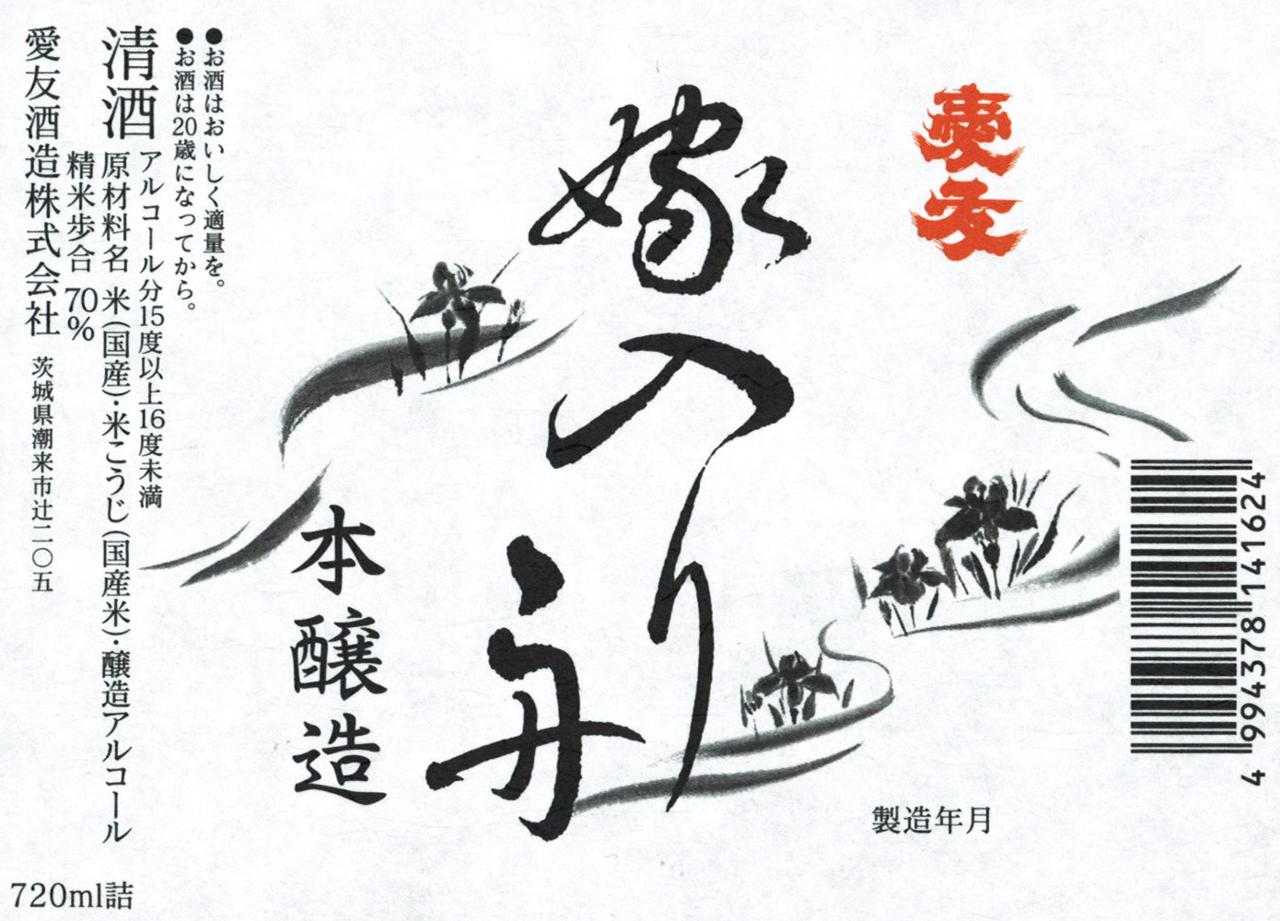 愛友
嫁入り舟
本醸造
製造年月
4 994378 141624
●お酒はおいしく適量を。
●お酒は20歳になってから。
清酒
アルコール分15度以上16度未満
原材料名 米(国産)・米こうじ(国産米)・醸造アルコール
精米歩合 70%
愛友酒造株式会社 茨城県潮来市辻二〇五
720ml詰